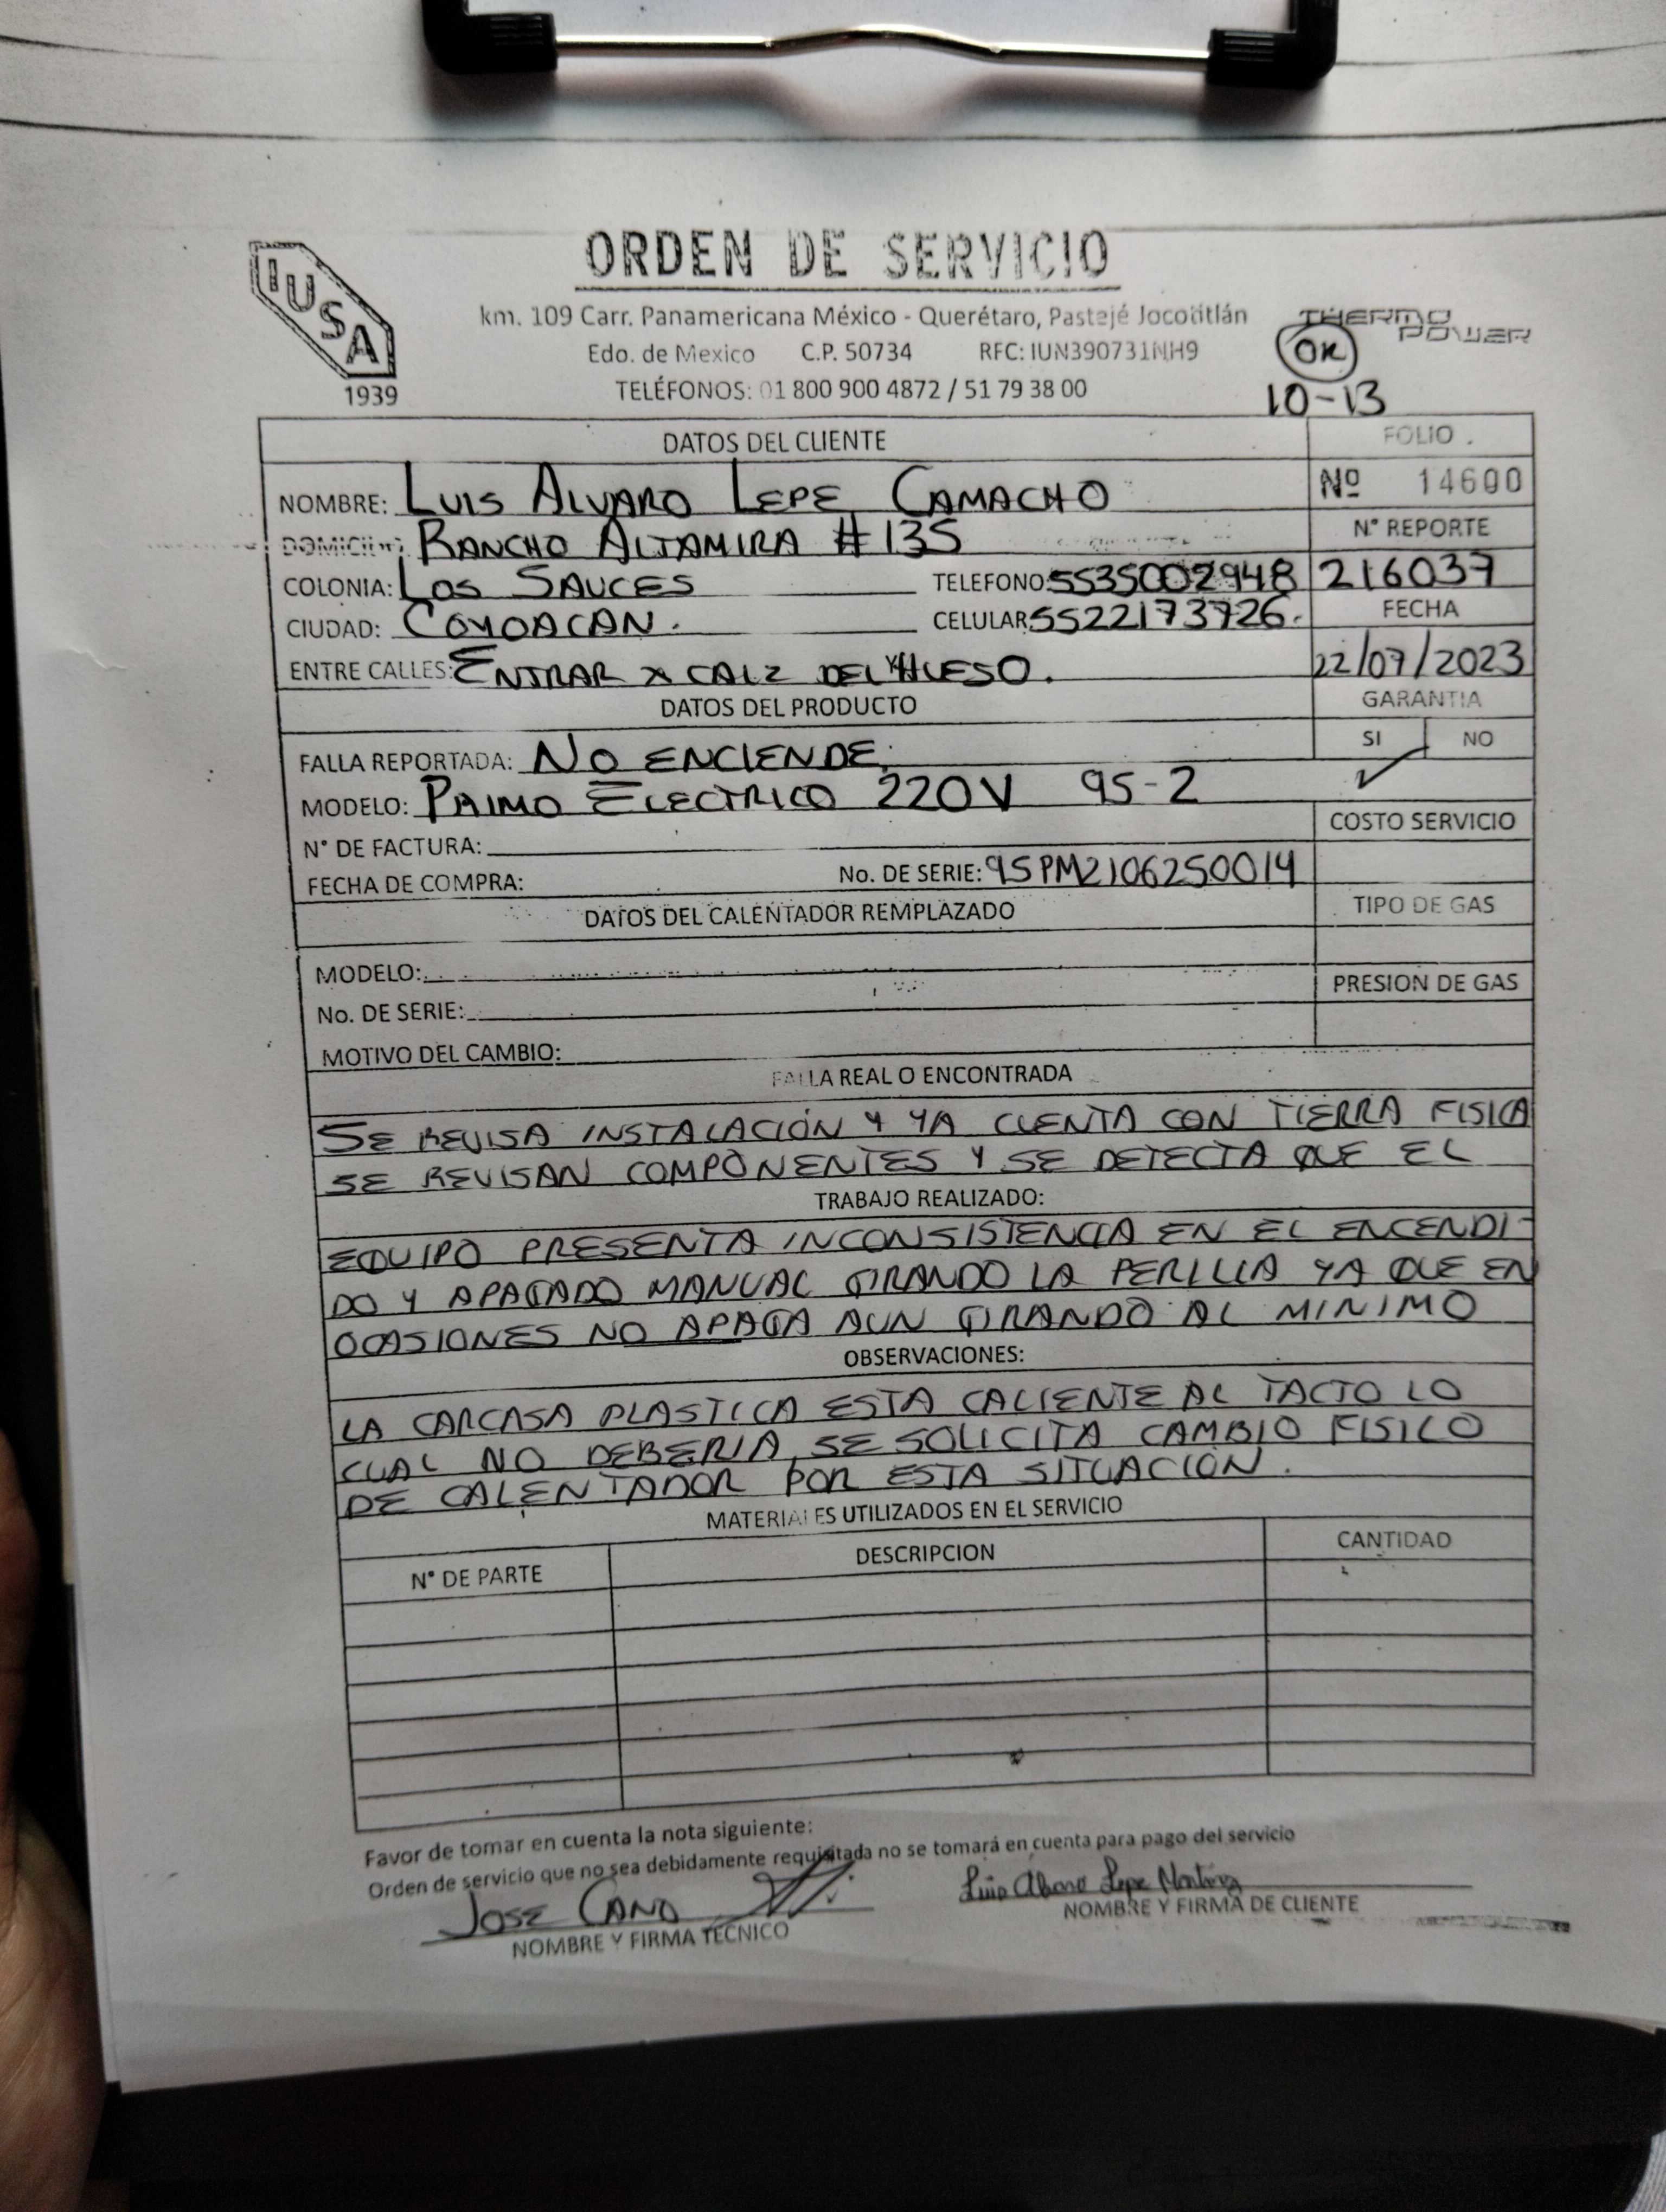 IUSA
1939
ORDEN DE SERVICIO
km. 109 Carr. Panamericana México - Querétaro, Pastejé Jocotitlán
Edo. de Mexico C.P. 50734 RFC: IUN390731NH9
TELÉFONOS: 01 800 900 4872 / 51 79 38 00
THERMO
POWER
OK
10-13
DATOS DEL CLIENTE
FOLIO
Nº 14600
NOMBRE: LUIS ALVARO LEPE CAMACHO
DOMICILIO: RANCHO ALTAMIRA #135
N° REPORTE
216037
COLONIA: LOS SAUCES TELEFONO: 5535002948
CIUDAD: COYOACAN. CELULAR: 5522173726.
FECHA
22/07/2023
ENTRE CALLES: ENTRAR X CALZ DEL HUESO.
DATOS DEL PRODUCTO
GARANTIA
SI NO
✓
FALLA REPORTADA: NO ENCIENDE.
MODELO: PRIMO ELECTRICO 220V 95-2
COSTO SERVICIO
N° DE FACTURA:
FECHA DE COMPRA: No. DE SERIE: 95PM2106250014
DATOS DEL CALENTADOR REMPLAZADO
TIPO DE GAS
MODELO:
PRESION DE GAS
No. DE SERIE:
MOTIVO DEL CAMBIO:
FALLA REAL O ENCONTRADA
SE REVISA INSTALACIÓN Y YA CUENTA CON TIERRA FISICA
SE REVISAN COMPONENTES Y SE DETECTA QUE EL
TRABAJO REALIZADO:
EQUIPO PRESENTA INCONSISTENCIA EN EL ENCENDI-
DO Y APAGADO MANUAL GIRANDO LA PERILLA YA QUE EN
OCASIONES NO APAGA AUN GIRANDO AL MINIMO
OBSERVACIONES:
LA CARCASA PLASTICA ESTA CALIENTE AL TACTO LO
CUAL NO DEBERIA, SE SOLICITA CAMBIO FISICO
DE CALENTADOR POR ESTA SITUACIÓN.
MATERIALES UTILIZADOS EN EL SERVICIO
N° DE PARTE DESCRIPCION CANTIDAD
Favor de tomar en cuenta la nota siguiente:
Orden de servicio que no sea debidamente requisitada no se tomará en cuenta para pago del servicio
JOSE CANO
NOMBRE Y FIRMA TECNICO
Luis Alvaro Lepe
NOMBRE Y FIRMA DE CLIENTE